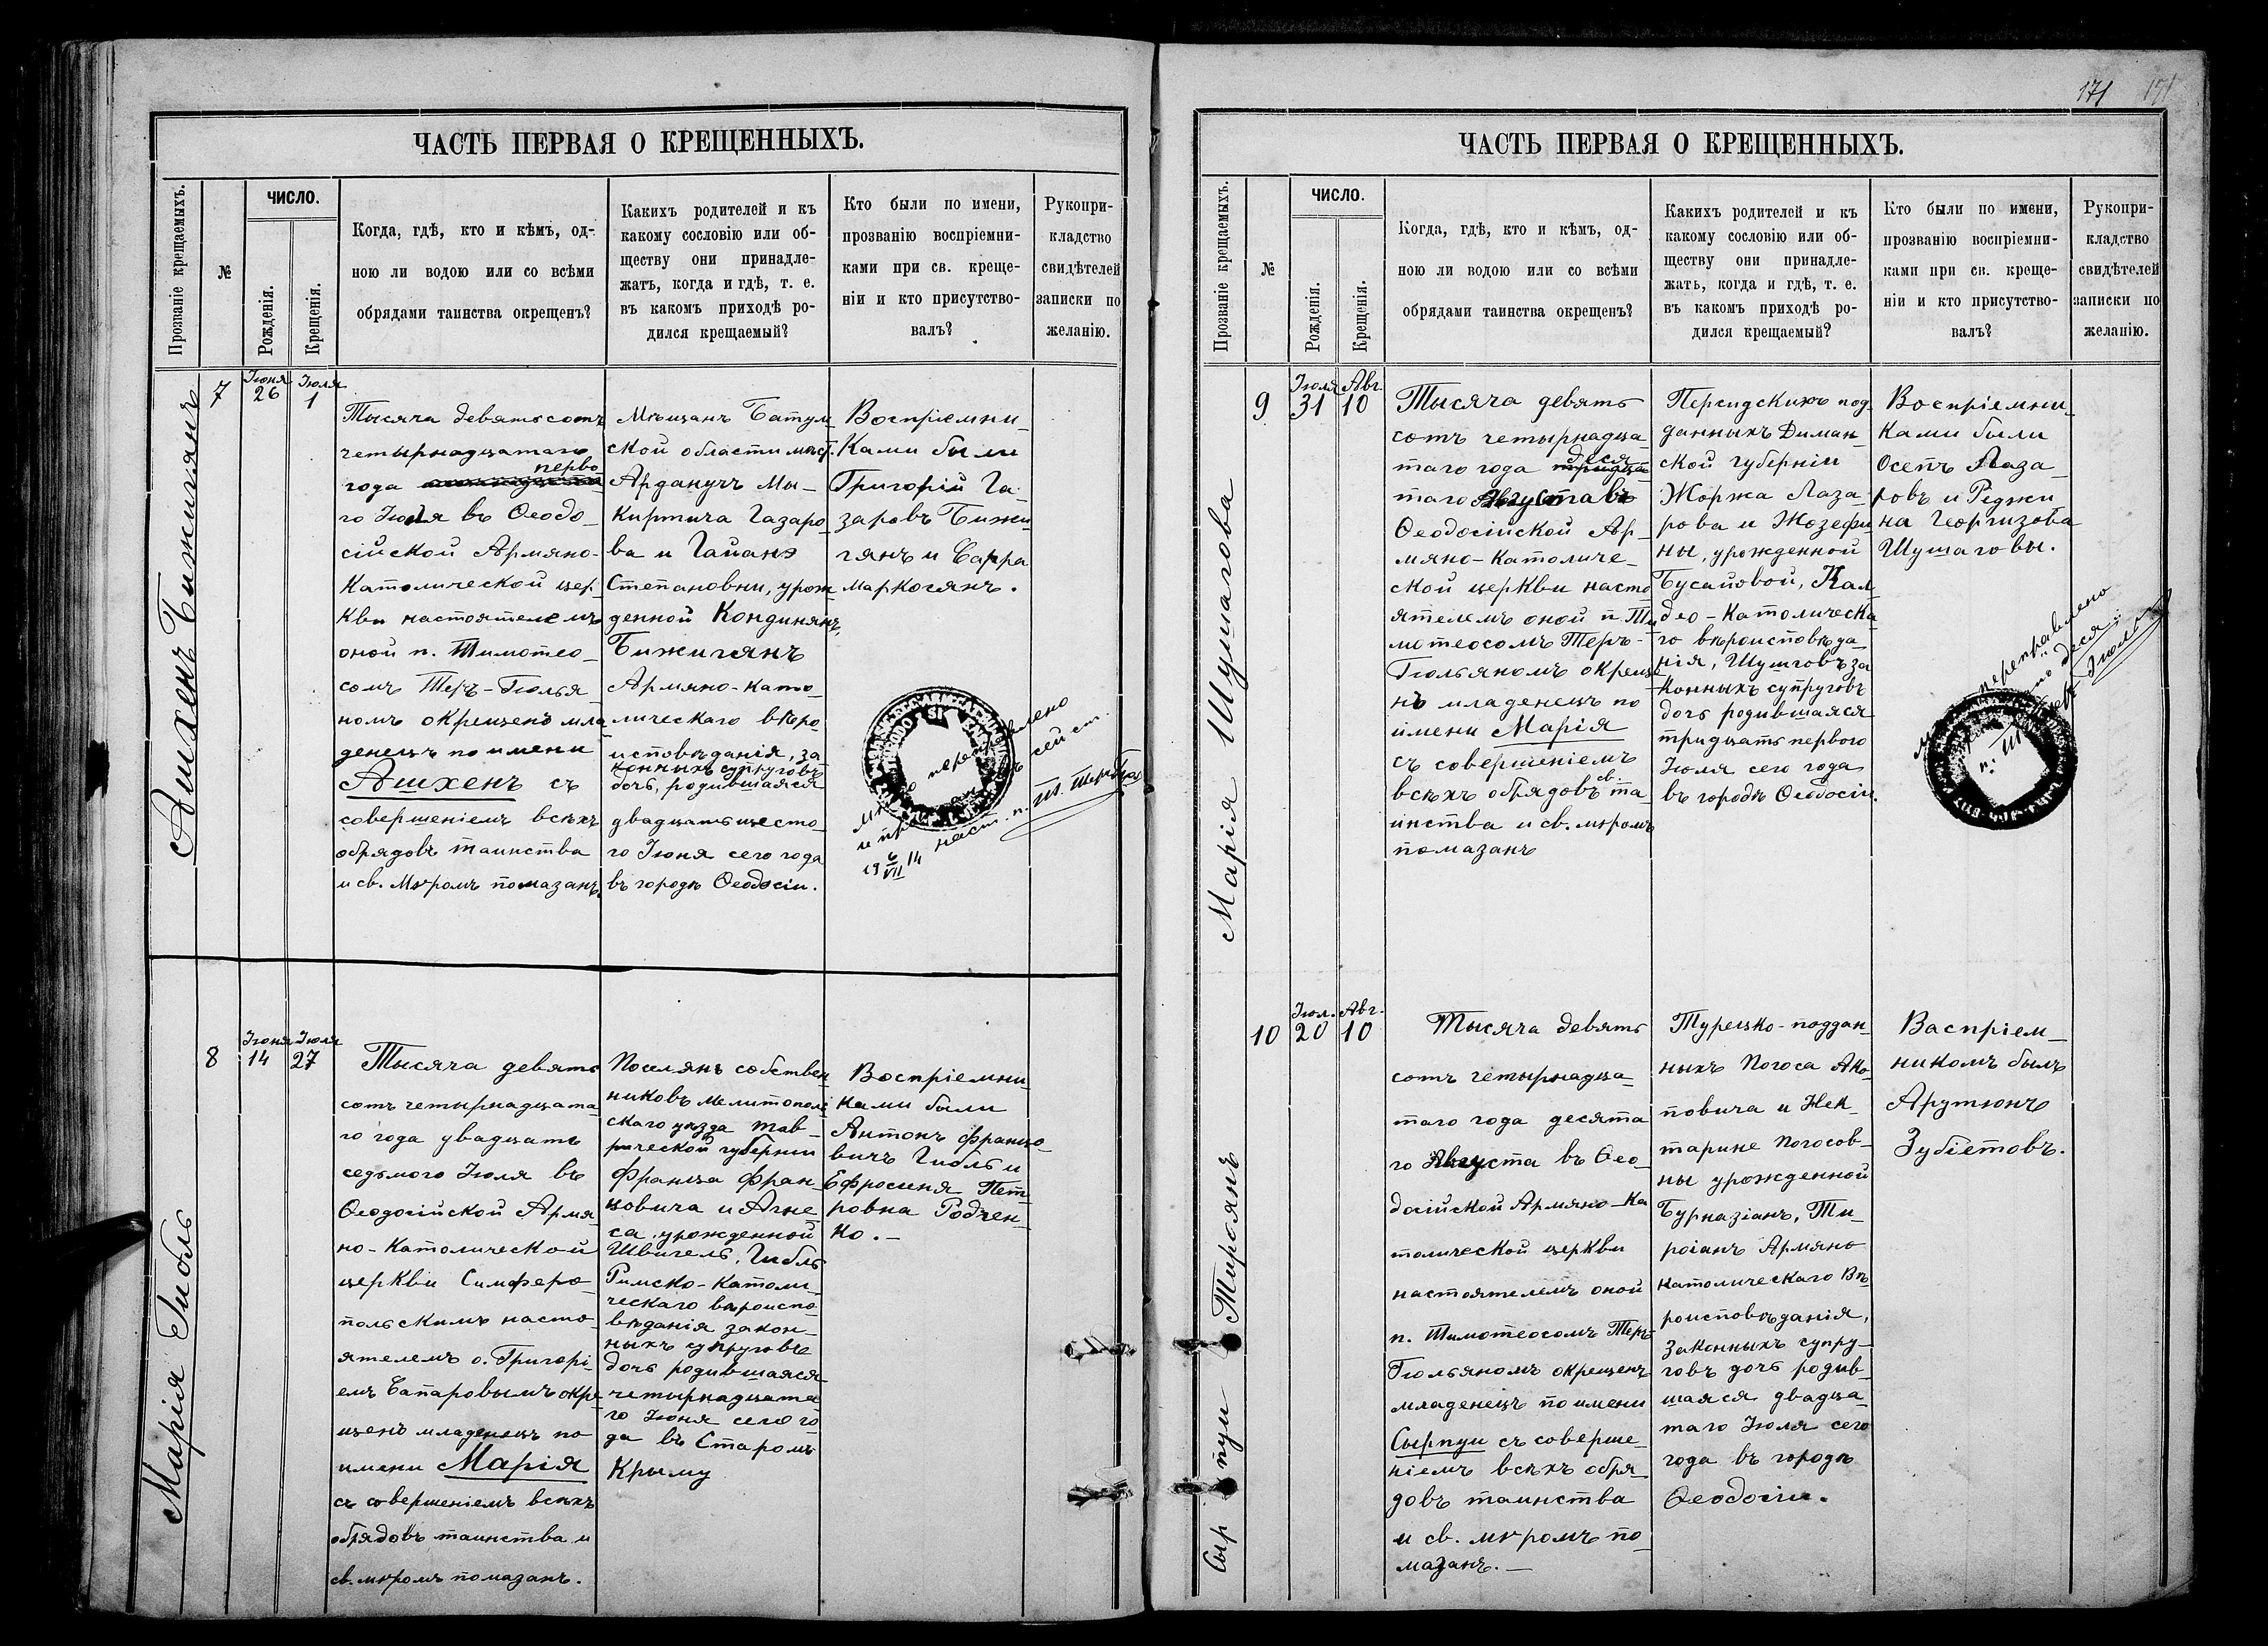 ЧАСТЬ ПЕРВАЯ О КРЕЩЕННЫХЪ.
Прозваніе крещаемыхъ.
№
ЧИСЛО.
Рожденія.
Крещенія.
Когда, гдѣ, кто и кѣмъ, од-
ною ли водою или со всѣми
обрядами таинства окрещенъ?
Какихъ родителей и къ
какому сословію или об-
ществу они принадле-
жатъ, когда и гдѣ, т. е.
въ какомъ приходѣ ро-
дился крещаемый?
Кто были по имени,
прозванію воспріемни-
ками при св. креще-
ніи и кто присутство-
валъ?
Рукопри-
кладство
свидѣтелей
записки по
желанію.
Ашхенъ Бижигянъ
7
Іюня
26
Іюля
1
Тысяча девятьсотъ
четырнадцатаго
перво
года
го Іюля въ Ѳеодо-
сійской Армяно-
Католической цер-
кви настоятелемъ
оной п. Тимотео-
сомъ Теръ-Гюлья
номъ окрещенъ мла
денецъ по имени
Ашхенъ съ
совершеніемъ всѣхъ
обрядовъ таинства
и св. Мѵромъ помазанъ.
Мѣщанъ Батум-
ской области мѣст.
Ардануч Мы-
Киртича Газаро
ва и Гаианэ
Степановны, урож
денной Кондинянъ,
Бижигянъ
Армяно-като-
лическаго вѣро
исповѣданія, за
конныхъ супруговъ
дочь, родившаяся
двадцать шесто-
го Іюня сего года
въ городѣ Ѳеодосіи.
Воспріемни-
ками были
Григорій Га-
заровъ Бижи-
гянъ и Сарра
Маркосянъ.
переправлено
сей ст.
19 6/VII 14 наст. п.
Марія Гибль
8
Іюня
14
Іюля
27
Тысяча девять
сотъ четырнадцата
го года увадцать
седьмого Іюля въ
Ѳеодосійской Армя
но-Католической
церкви Симферо-
польскимъ насто-
ятелемъ о. Григорі-
емъ Сапаровымъ окре
щенъ младенецъ по
имени Марія
съ совершеніемъ всѣхъ
обрядовъ таинства и
св. мѵромъ помазанъ.
Поселянъ собствен
никовъ Мелитополь
скаго уѣзда Тав-
рической губерніи
Франца Фран-
цовича и Агне-
са, урожденной
Швигель, Гибль
Римско-Католи-
ческаго вѣроиспо
вѣданія закон-
ныхъ супруговъ
дочь родившаяся
четырнадцата
го Іюня сего го
да въ Старомъ
Крыму
Воспріемни-
ками были
Антонъ Францо-
вичъ Гибль и
Ефросиня Пет-
ровна Родчен-
ко.-
171
171
ЧАСТЬ ПЕРВАЯ О КРЕЩЕННЫХЪ.
Прозваніе крещаемыхъ.
№
ЧИСЛО.
Рожденія.
Крещенія.
Когда, гдѣ, кто и кѣмъ, од-
ною ли водою или со всѣми
обрядами таинства окрещенъ?
Какихъ родителей и къ
какому сословію или об-
ществу они принадле-
жатъ, когда и гдѣ, т. е.
въ какомъ приходѣ ро-
дился крещаемый?
Кто были по имени,
прозванію воспріемни-
ками при св. креще-
ніи и кто присутство-
валъ?
Рукопри-
кладство
свидѣтелей
записки по
желанію.
Марія Шушагова
9
Іюля
31
Авг.
10
Тысяча девять
сотъ четырнадца-
деся-
таго года тридца
таго Августа въ
Ѳеодосійской Ар-
мяно-Католиче-
ской церкви насто
ятелемъ оной п. Ти
мотеосомъ Теръ-
Гюльяномъ окреще
нъ младенецъ по
имени Марія
съ совершеніемъ
всѣхъ обрядовъ св. та
инства и св. мѵромъ
помазанъ
Персидскихъ под-
данныхъ Диман-
ской губерніи
Жоржа Лаза-
рова и Жозефи
ны, урожденной
Бусаиовой, Хал-
део-Католическа
го вѣроисповѣда-
нія, Шушговъ за
конныхъ супруговъ
дочь родившаяся
тридцать первого
Іюля сего года
въ городѣ Ѳеодосіи.
Воспріемни-
ками были
Осепъ Лаза-
ровъ и Реджи
на Георгизова
Шушаговы.
переправлено
деся-
Сырпуи Тироянъ
10
Іюл.
20
Авг.
10
Тысяча девять
сотъ четырнадца-
таго года десята
го Августа въ Ѳео-
досійской Армяно-Ка
толической церкви
настоятелемъ оной
п. Тимотеосомъ Теръ
Гюльяномъ окрещенъ
младенецъ по имени
Сырпуи съ соверше-
ніемъ всѣхъ обря-
довъ таинства
и св. мѵромъ по-
мазанъ.-
Турецко-поддан-
ныхъ Погоса Ако-
повича и Нек-
тарине Погосов-
ны урожденной
Бурназіанъ, Ти-
роіанъ Армяно
католическаго Вѣ-
роисповѣданія,
законныхъ супру-
говъ дочь родив-
шаяся двадца-
таго Іюля сего
года въ городѣ
Ѳеодосіи.
Васпріем-
никомъ былъ
Арутюнъ
Зубіетовъ.